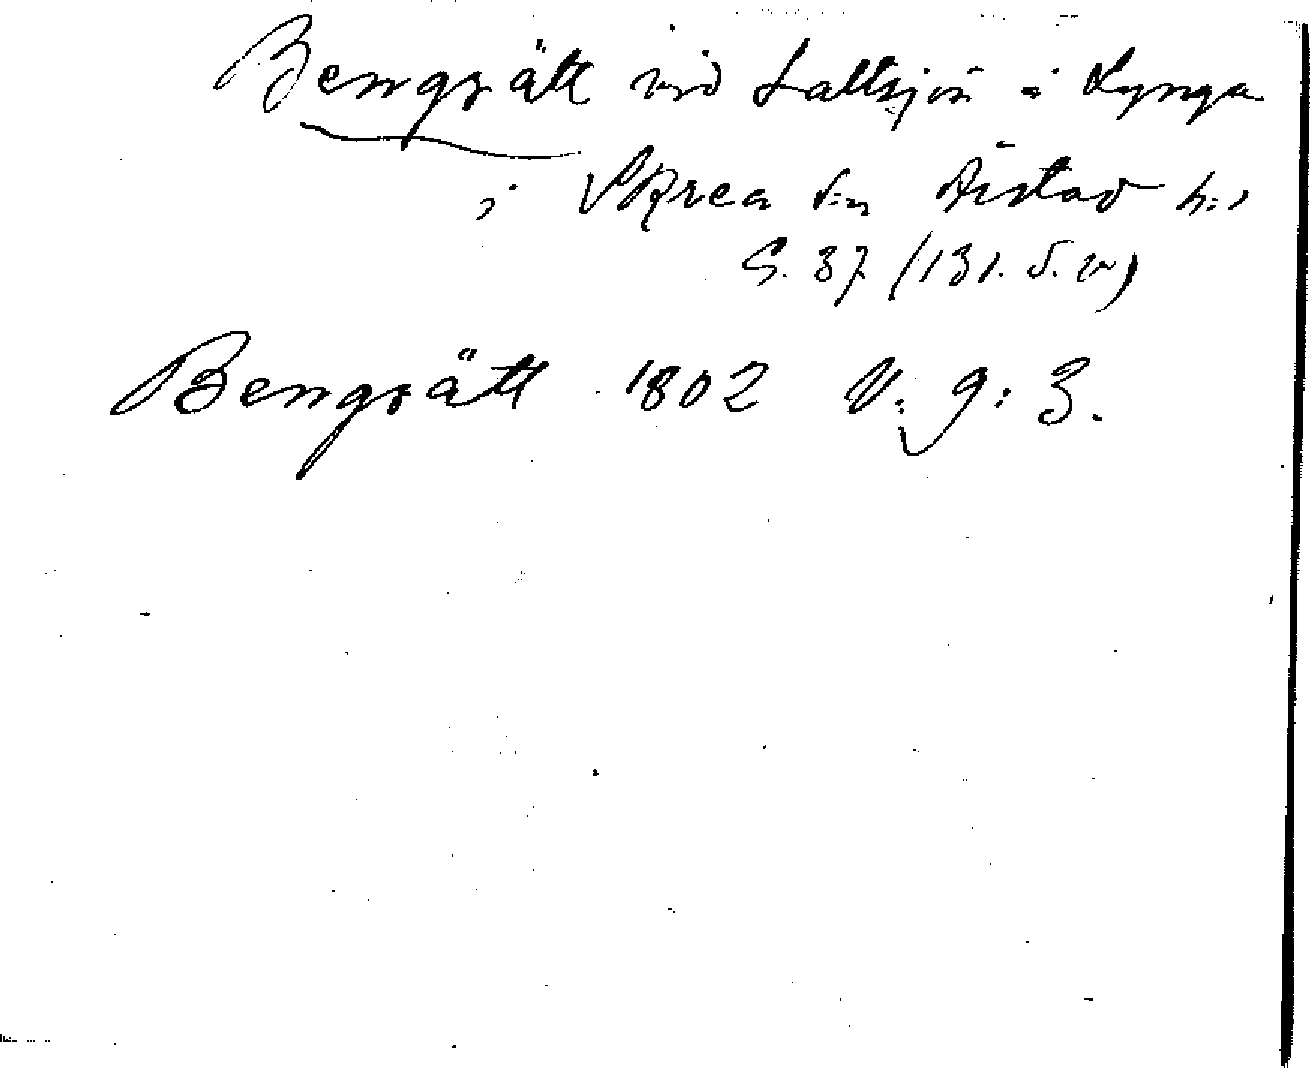 Bengsätt vid Saltsjön i Lynga
i Skrea s:n Årstad h:d
G. 37. (131. S. v)
Bengsätt 1802 V. g: 3.